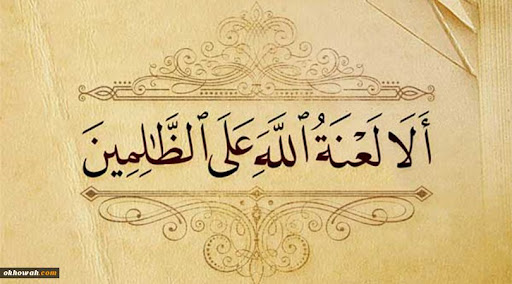 أَلَا لَعْنَةُ ٱللَّهِ عَلَى ٱلظَّـٰلِمِينَ
okhowah.com